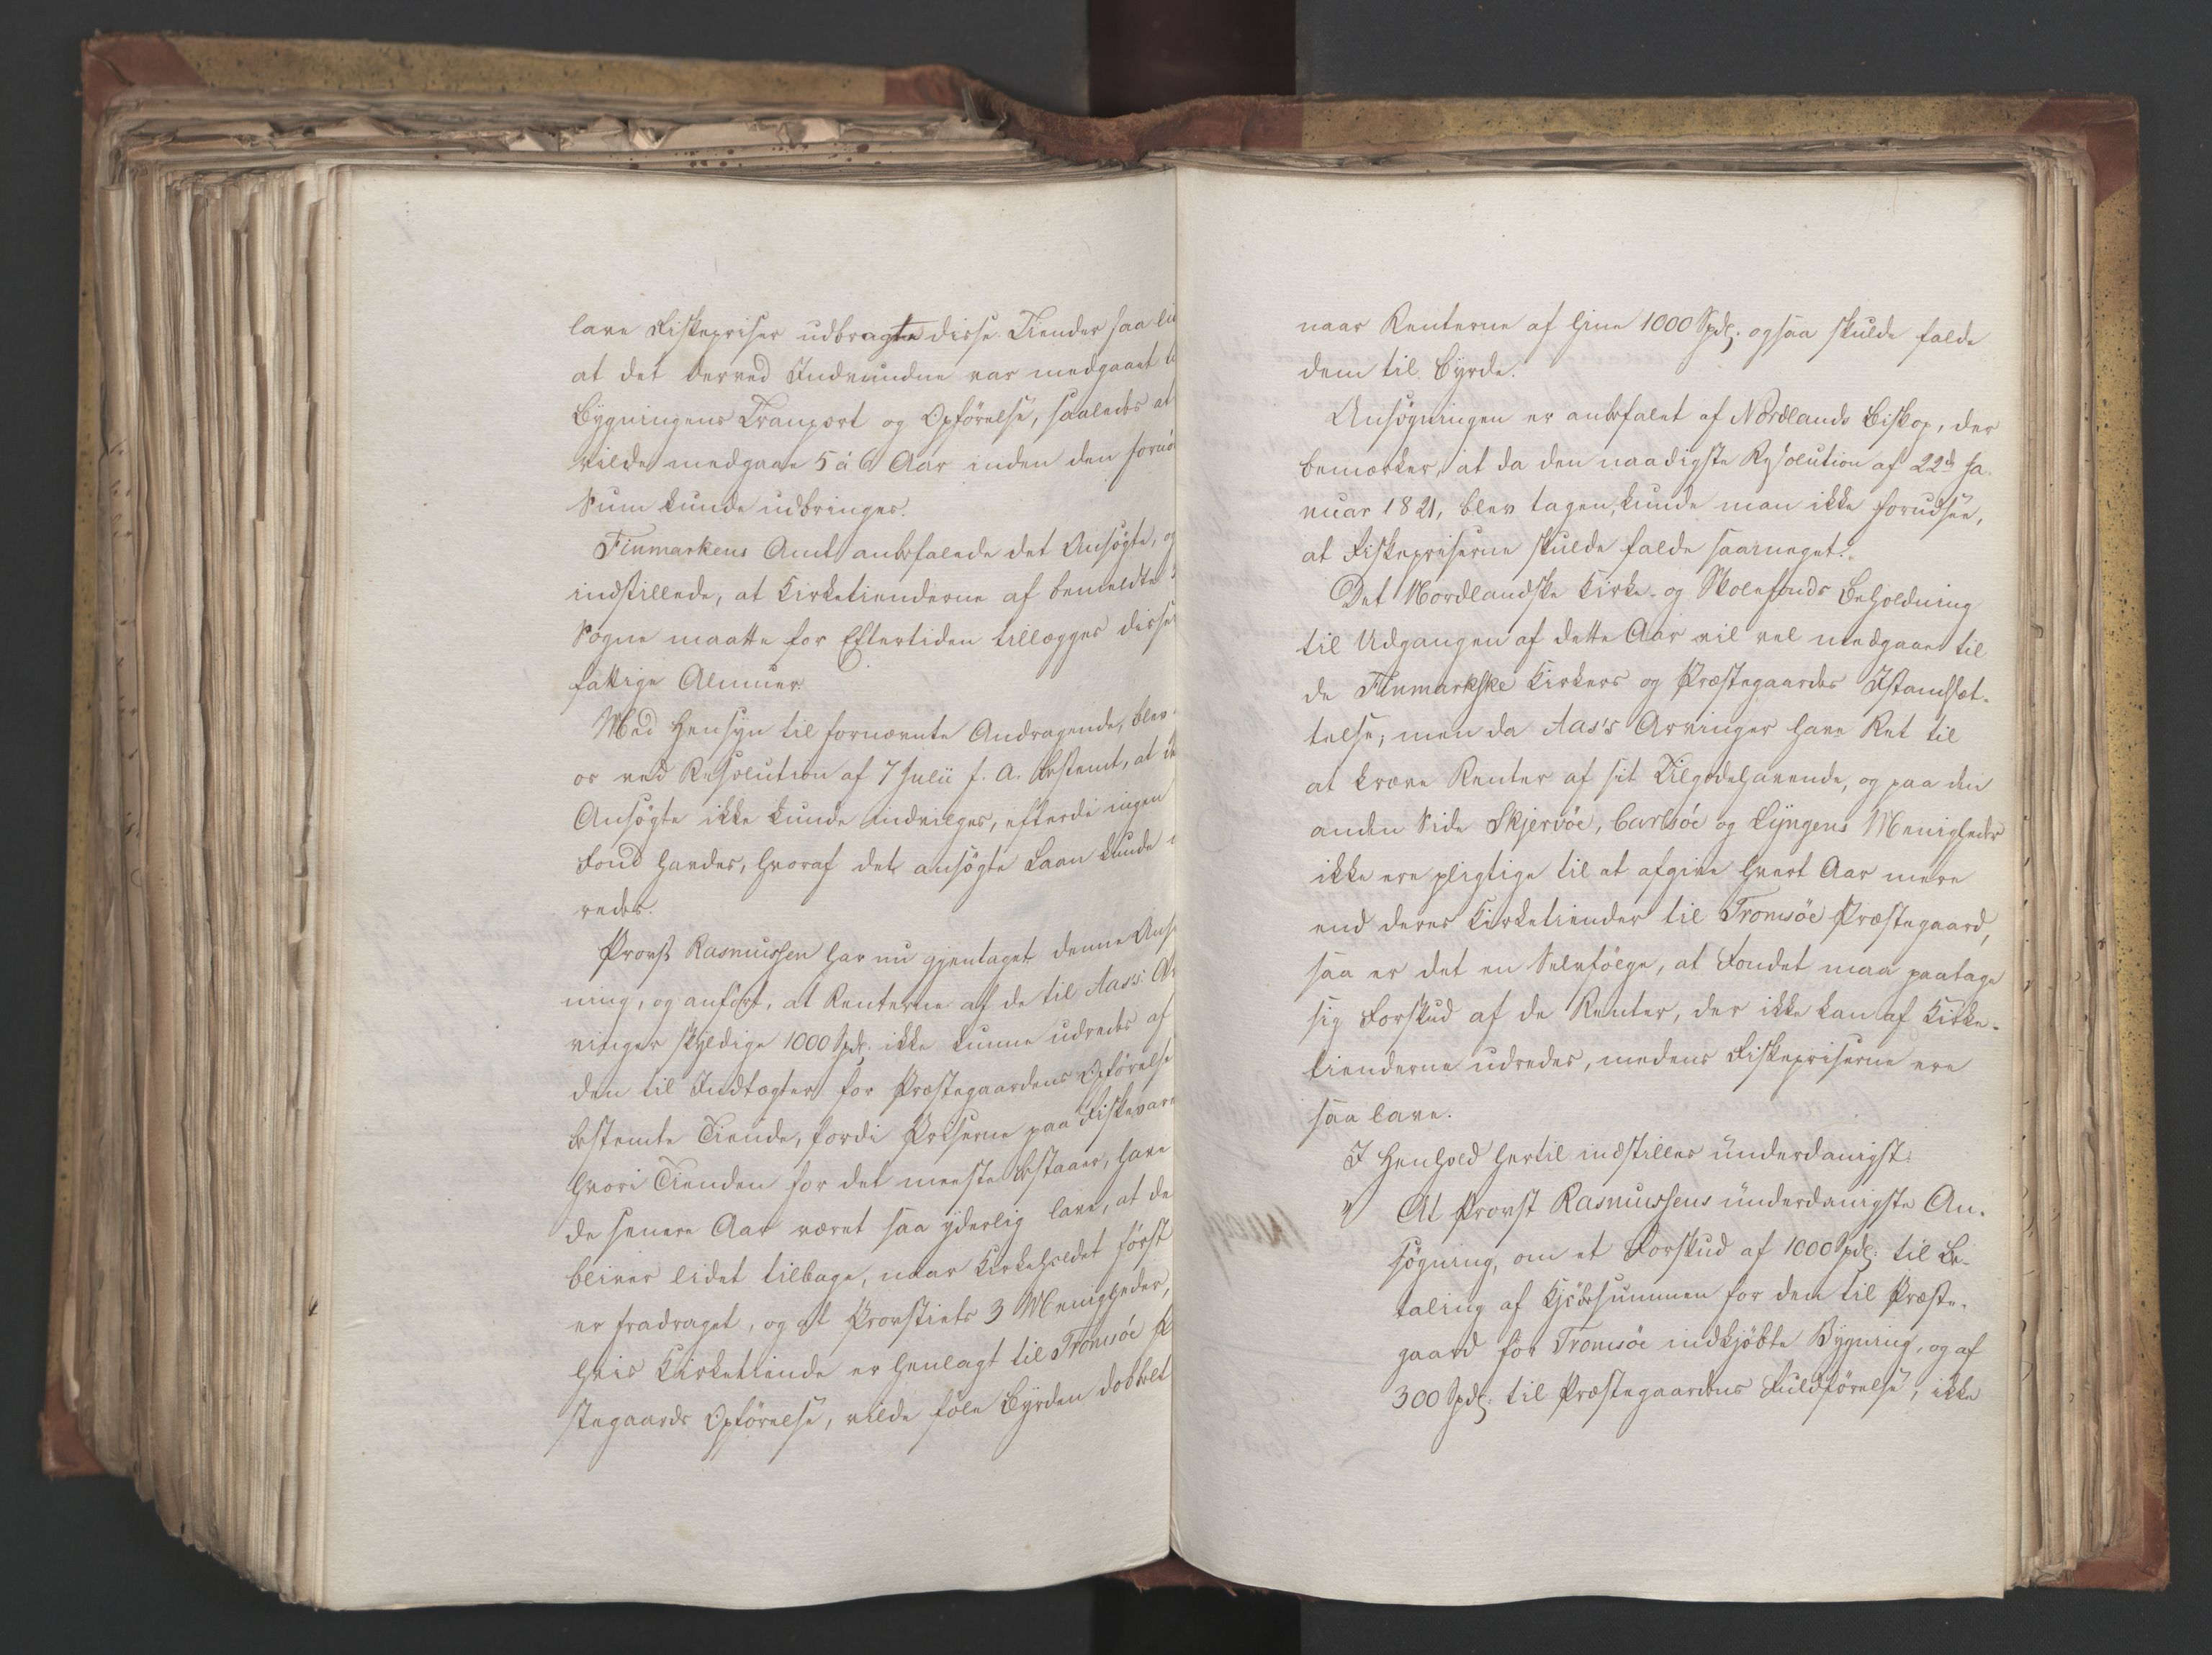 lave Fiskepriser udbragte disse Tiender saa
at det derved Indvundne var medgaaet
Bygningens Transport og Opförelse, saaledes at
vilde medgaae 5 à 6 Aar inden den
Sum kunde udbringes.
Finmarkens Amt anbefalede det Ansögte, og
indstillede, at Kirketienderne af bemeldte
Sogne maatte for Eftertiden tillægges disse
fattige Almuer.
Med Hensyn til fornævnte Andragende, blev
os ved Resolution af 7 Julii f. A. bestemt, at
Ansögte ikke kunde indvilges, efterdi ingen
Fond havdes, hvoraf det ansögte Laan kunde
redes.
Provst Rasmussen har nu gjentaget denne Ansö
ning, og anfört, at Renterne af de til Aas's Ar
vinger skyldige 1000 Spdr. ikke kunne udredes af
den til Indtægter for Præstegaardens Opförelse
bestemte Tiende, fordi Priserne paa Fiskevare
hvori Tienden for det meeste bestaaer, have
de senere Aar været saa yderlig lave, at de
bliver lidet tilbage, naar Kirkeholdet först
er fradraget, og at Provstiets 3 Menigheder,
hvis Kirketiende er henlagt til Tromsöe Præ
stegaards Opförelse, vilde föle Byrden dobbelt
naar Renterne af hine 1000 Spdl. ogsaa skulde falde
dem til Byrde.
Ansögningen er anbefalet af Nordlands Biskop, der
bemærker, at da den naadigste Resolution af 22d Ja-
nuar 1821, blev tagen, kunde man ikke forudsee,
at Fiskepriserne skulde falde saameget.
Det Nordlandske Kirke- og Skolefonds Beholdning
til Udgangen af dette Aar vil vel medgaae til
de Finmarkske Kirkers og Præstegaardes Istandsæt-
telse; men da Aas's Arvinger have Ret til
at kræve Renter af sit Tilgodehavende, og paa den
anden Side Skjervöe, Carlsöe og Lyngens Menigheder
ikke ere pligtige til at afgive hvert Aar mere
end deres Kirketiender til Tromsöe Præstegaard,
saa er det en Selvfölge, at Fondet maa paatage
sig Forskud af de Renter, der ikke kan af Kirke-
tienderne udredes, medens Fiskepriserne ere
saa lave.
I Henhold hertil indstilles underdanigst:
" At Provst Rasmussens underdanigste An-
sögning, om et Forskud af 1000 Spdl. til Be-
taling af Kjöbesummen for den til Præste-
gaard for Tromsöe indkjöbte Bygning, og af
300 Spdl. til Præstegaardens Fuldförelse, ikke